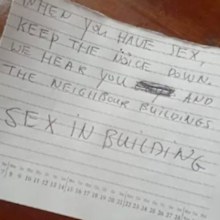 WHEN YOU HAVE SEX,
KEEP THE NOICE DOWN.
WE HEAR YOU AND
THE NEIGHBOUR BUILDINGS
SEX IN BUILDING